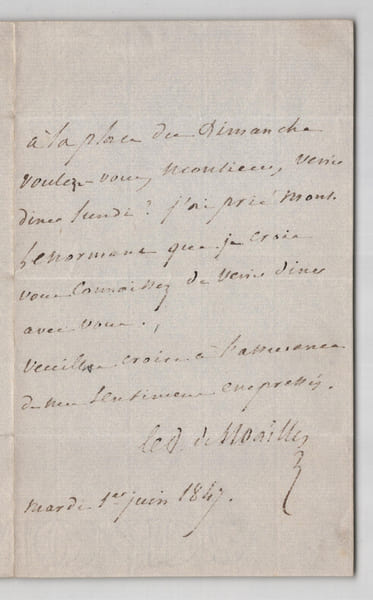 à la place du Dimanche
voulez-vous, Monsieur, venir
diner lundi ? j'ai prié Mont.
Lenormant que je crois
vous connaissez de venir diner
avec vous.,
veuillez croire à l'assurance
de mes sentimens empressés.
le d. de Noailles
mardi 1er juin 1847.